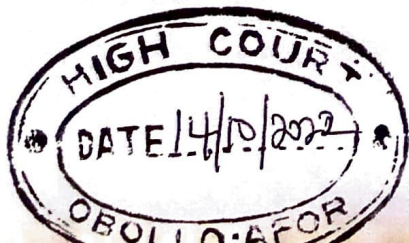 HIGH COURT
DATE 14/10/2022
OBOLLO-AFOR